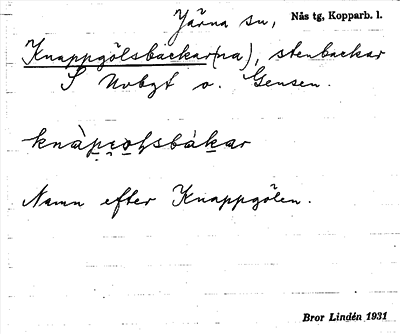 Järna sn, Nås tg, Kopparb. l.
Knappgölsbackar(na), stenbackar
S Nybyt o. Gensen.
Namn efter Knappgölen.
Bror Lindén 1931